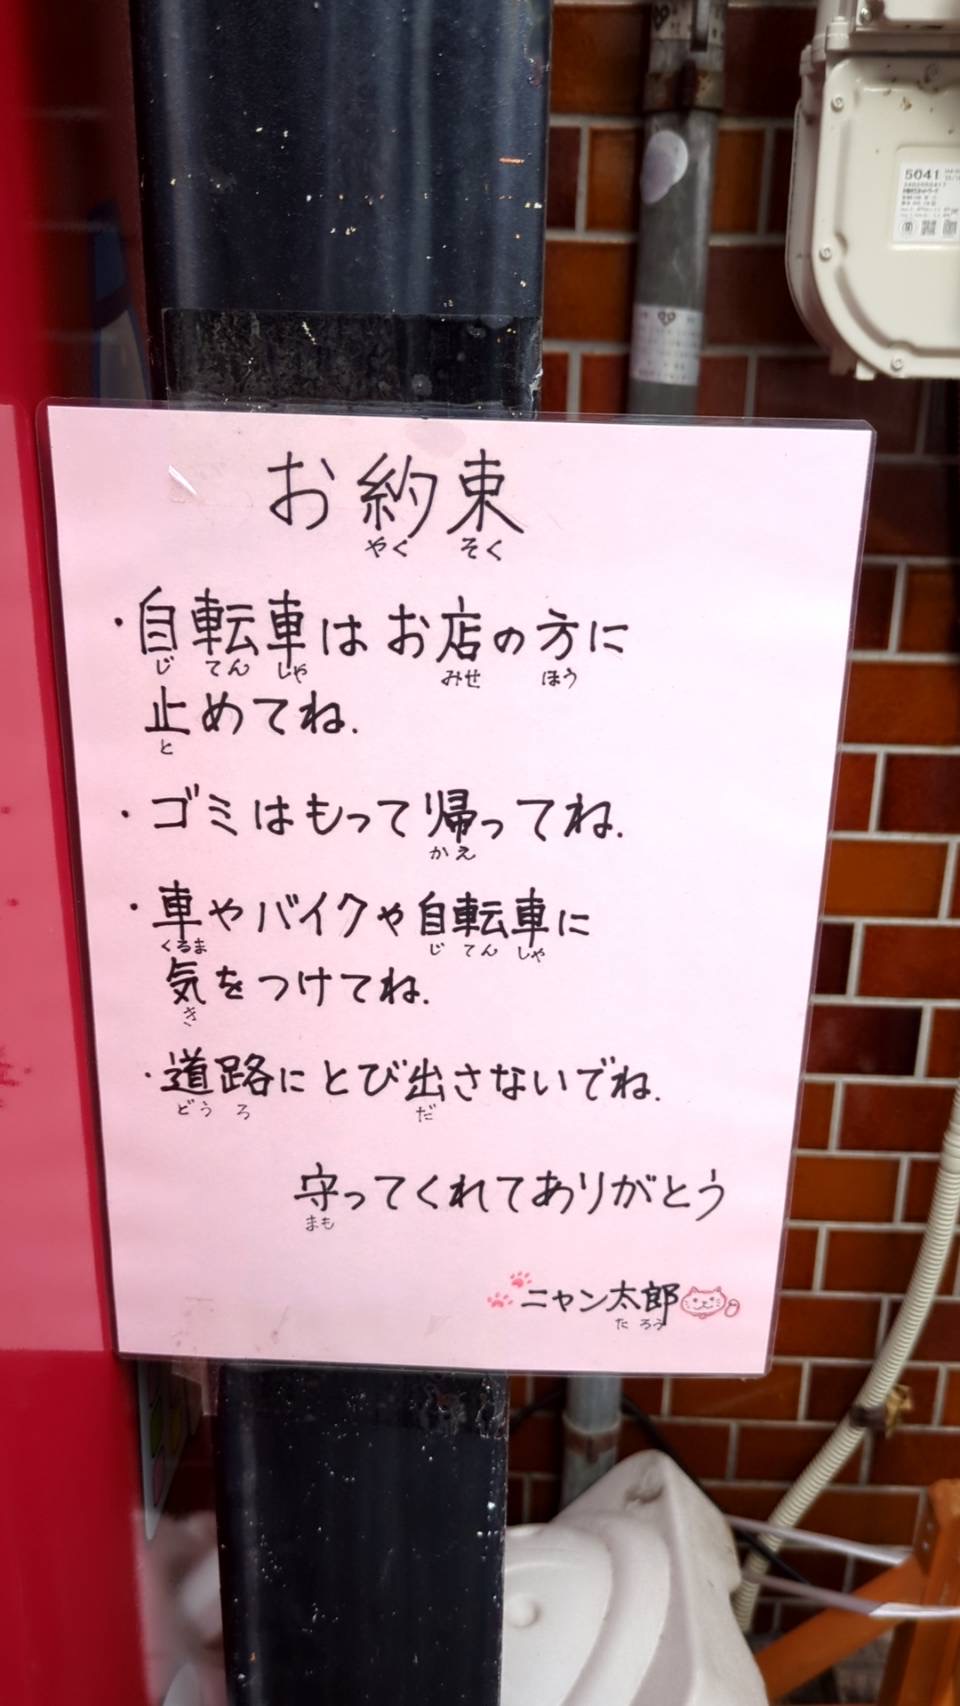 5041
お約束
やく そく
・自転車はお店の方に
じ てん しゃ みせ ほう
止めてね.
と
・ゴミはもって帰ってね.
かえ
・車やバイクや自転車に
くるま じ てん しゃ
気をつけてね.
き
・道路にとび出さないでね.
どう ろ だ
守ってくれてありがとう
まも
ニャン太郎
た ろう